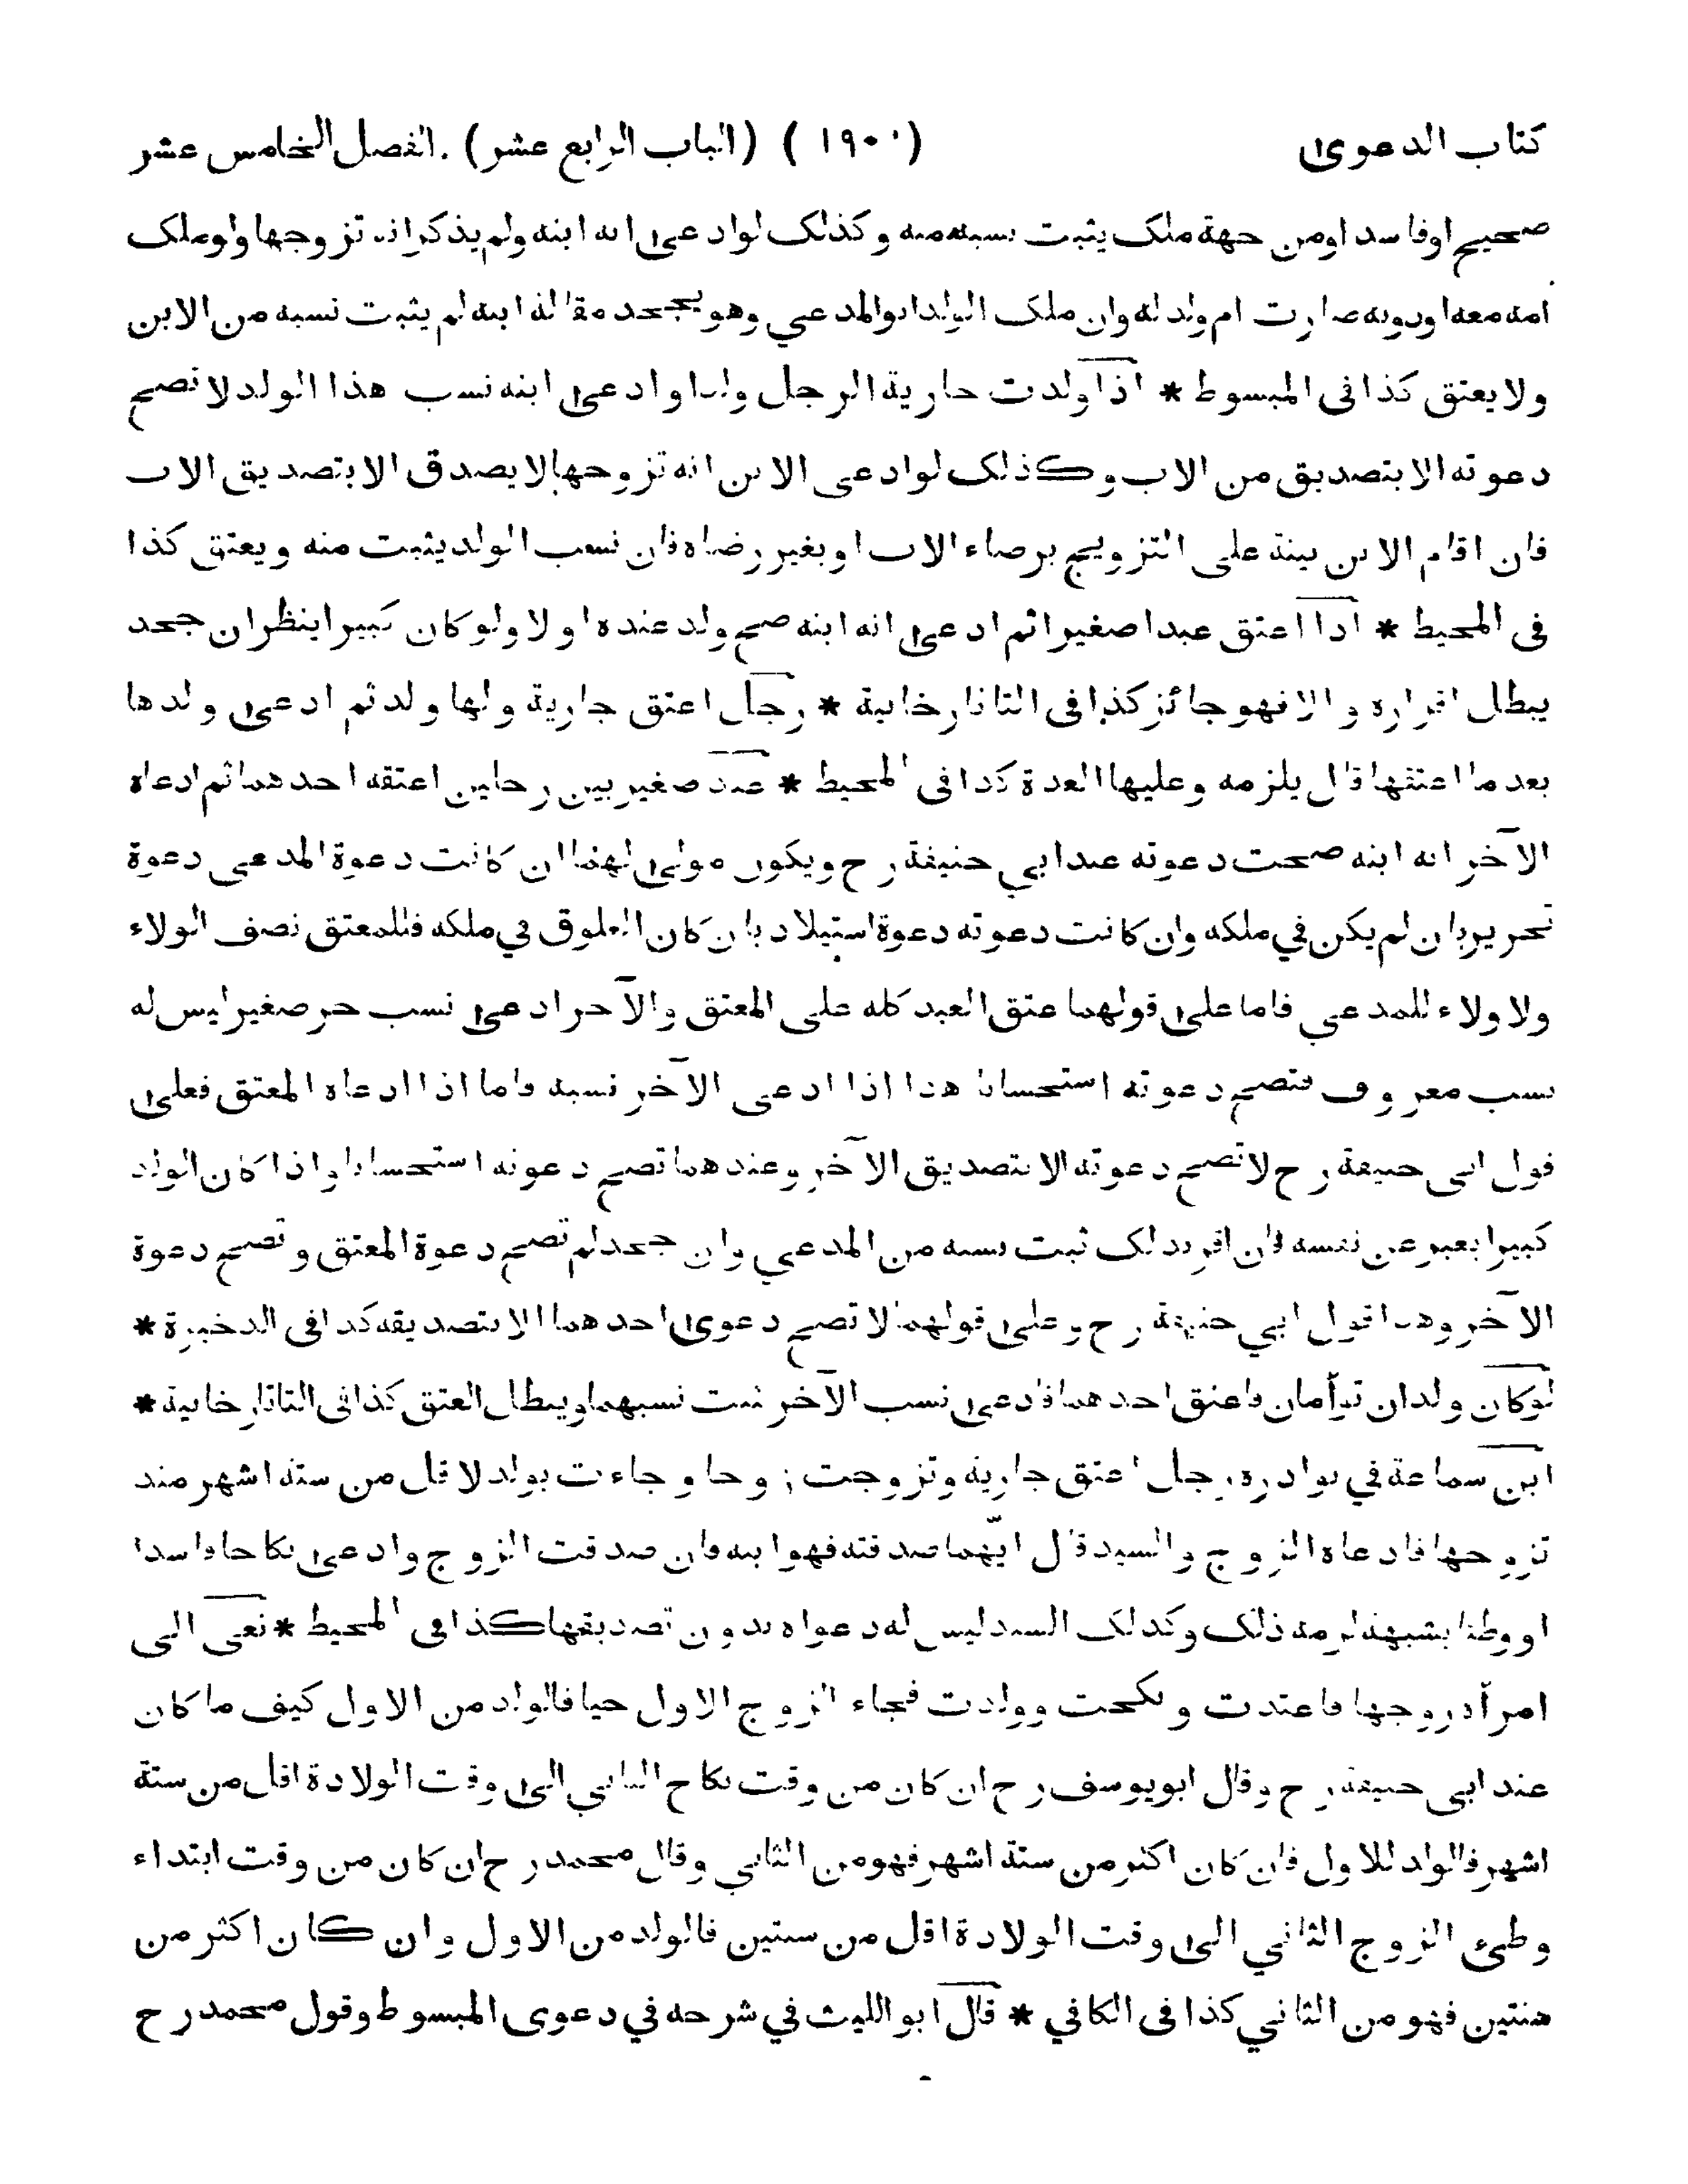 كتاب الدعوى (١٩٠) (الباب الرابع عشر). الفصل الخامس عشر
صحيح اوفاسد اومن جهة ملك يثبت نسبه منه وكذلك لوادعى انه ابنه ولم يذكرانه تزوجها ولو ملك
امه معه اودونه صارت ام ولد له وان ملك الولد ابوالمدعي وهو يجحد مقالة ابنه لم يثبت نسبه من الابن
ولايعتق كذا فى المبسوط * اذا ولدت جارية الرجل ولدا وادعى ابنه نسب هذا الولد لا تصح
دعوته الا بتصديق من الاب وكذلك لوادعى الابن انه تزوجها لايصدق الا بتصديق الاب
فان اقام الابن بينة على التزويج برضاء الاب او بغير رضاه فان نسب الولد يثبت منه ويعتق كذا
فى المحيط * اذا اعتق عبدا صغيرا ثم ادعى انه ابنه صح ولد عنده او لا ولو كان كبيرا ينظر ان جحد
يبطل اقراره والا فهو جائز كذا فى التاتارخانية * رجل اعتق جارية ولها ولد ثم ادعى ولدها
بعد ما اعتقها قال يلزمه وعليها العدة كذا فى المحيط * عبد صغير بين رجلين اعتقه احدهما ثم ادعاه
الآخر انه ابنه صحت دعوته عند ابي حنيفة رح ويكون مولى لهما ان كانت دعوة المدعى دعوة
تحرير بان لم يكن في ملكه وان كانت دعوته دعوة استيلاد بان كان العلوق في ملكه فللمعتق نصف الولاء
ولا ولاء للمدعي فاما على قولهما عتق العبد كله على المعتق والآخر ادعى نسب حر صغير ليس له
نسب معروف فتصح دعوته استحسانا هذا اذا ادعى الآخر نسبه فاما اذا ادعاه المعتق فعلى
قول ابى حنيفة رح لا تصح دعوته الا بتصديق الآخر وعندهما تصح دعوته استحسانا واذا كان الولد
كبيرا يعبر عن نفسه فان اقر بذلك ثبت نسبه من المدعي وان جحد لم تصح دعوة المعتق وتصح دعوة
الآخر وهذا قول ابي حنيفة رح وعلى قولهما لا تصح دعوى احدهما الا بتصديقه كذا فى الذخيرة *
لوكان ولدان توأمان فاعتق احدهما فادعى نسب الآخر ثبت نسبهما ويبطل العتق كذا فى التاتارخانية *
ابن سماعة في نوادره رجل اعتق جارية وتزوجت زوجا وجاءت بولد لاقل من ستة اشهر منذ
تزوجها فادعاه الزوج والسيد قال ايّهما صدقته فهوابنه فان صدقت الزوج وادعى نكاحا فاسدا
او وطئا بشبهة لزمه ذلك وكذلك السيد ليس له دعواه بدون تصديقها كذا فى المحيط * نعى الى
امرأة زوجها فاعتدت ونكحت وولدت فجاء الزوج الاول حيا فالولد من الاول كيف ما كان
عند ابى حنيفة رح وقال ابويوسف رح ان كان من وقت نكاح الثاني الى وقت الولادة اقل من ستة
اشهر فالولد للاول فان كان اكثر من ستة اشهر فهو من الثاني وقال محمد رح ان كان من وقت ابتداء
وطئ الزوج الثاني الى وقت الولادة اقل من سنتين فالولد من الاول وان كان اكثر من
سنتين فهو من الثاني كذا فى الكافي * قال ابو الليث في شرحه في دعوى المبسوط وقول محمد رح